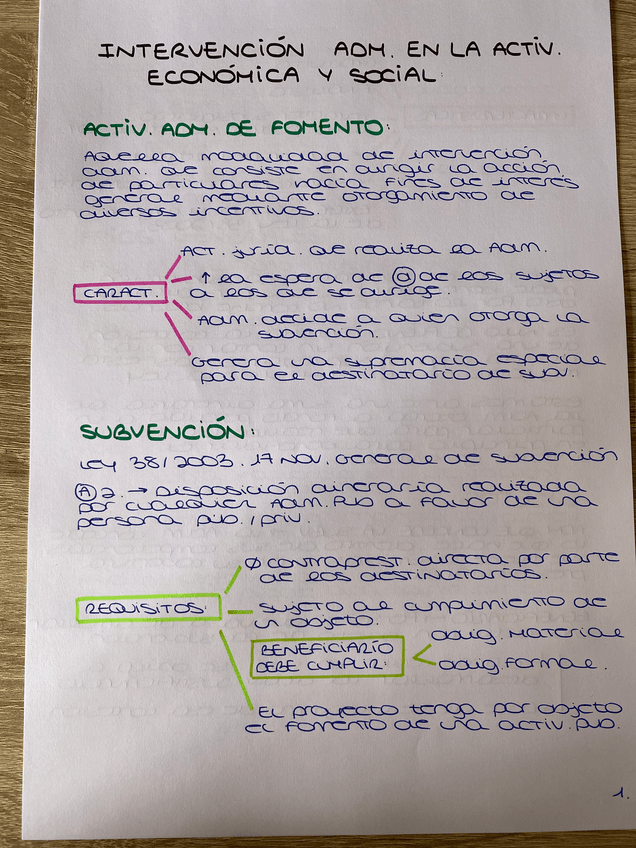 INTERVENCIÓN ADM. EN LA ACTIV.
ECONÓMICA Y SOCIAL:
ACTIV. ADM. DE FOMENTO:
Aquella modalidad de interención
adm. que consiste en dirigir la acción
de particulares hacia fines de interés
general mediante otorgamiento de
diversos incentivos.
ACT. jurid. que realiza la Adm.
CARACT.
↑ la espera de ⓐ de los sujetos
a los que se dirige.
Adm. decide a quien otorga la
subvención.
Genera una supremacía especial
para el destinatario de subv.
SUBVENCIÓN:
Ley 38/2003. 17 NOV. General de subvención
Ⓐ 2. → Disposición dineraria realizada
por cualquier Adm. Pub a favor de una
persona púb. / priv.
Ø contraprest. directa por parte
de los destinatarios.
REQUISITOS:
Sujeto al cumplimiento de
un objeto.
BENEFICIARIO
DEBE CUMPLIR:
oblig. Material
oblig. Formal.
El proyecto tenga por objeto
el fomento de una activ. pub.
1.